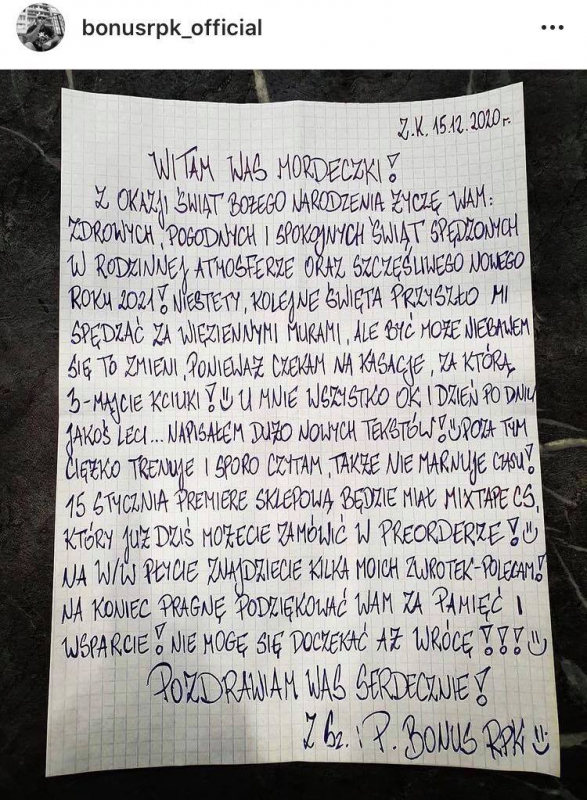 bonusrpk_official
Z.K. 15.12.2020r.
WITAM WAS MORDECZKI!
Z OKAZJI ŚWIĄT BOŻEGO NARODZENIA ŻYCZĘ WAM:
ZDROWYCH, POGODNYCH I SPOKOJNYCH ŚWIĄT SPĘDZONYCH
W RODZINNEJ ATMOSFERZE ORAZ SZCZĘŚLIWEGO NOWEGO
ROKU 2021! NIESTETY, KOLEJNE ŚWIĘTA PRZYSZŁO MI
SPĘDZAĆ ZA WIĘZIENNYMI MURAMI, ALE BYĆ MOŻE NIEBAWEM
SIĘ TO ZMIENI, PONIEWAŻ CZEKAM NA KASACJE, ZA KTÓRĄ
3-MAJCIE KCIUKI! U MNIE WSZYSTKO OK I DZIEŃ PO DNIU
JAKOŚ LECI... NAPISAŁEM DUŻO NOWYCH TEKSTÓW! POZA TYM
CIĘŻKO TRENUJE I SPORO CZYTAM, TAKŻE NIE MARNUJE CZASU!
15 STYCZNIA PREMIERE SKLEPOWĄ BĘDZIE MIAŁ MIXTAPE CS,
KTÓRY JUŻ DZIŚ MOŻECIE ZAMÓWIĆ W PREORDERZE!
NA W/W PŁYCIE ZNAJDZIECIE KILKA MOICH ZWROTEK-POLECAM!
NA KONIEC PRAGNĘ PODZIĘKOWAĆ WAM ZA PAMIĘĆ I
WSPARCIE! NIE MOGĘ SIĘ DOCZEKAĆ AŻ WRÓCĘ!!!
POZDRAWIAM WAS SERDECZNIE!
Z Sz. i P. BONUS RPK